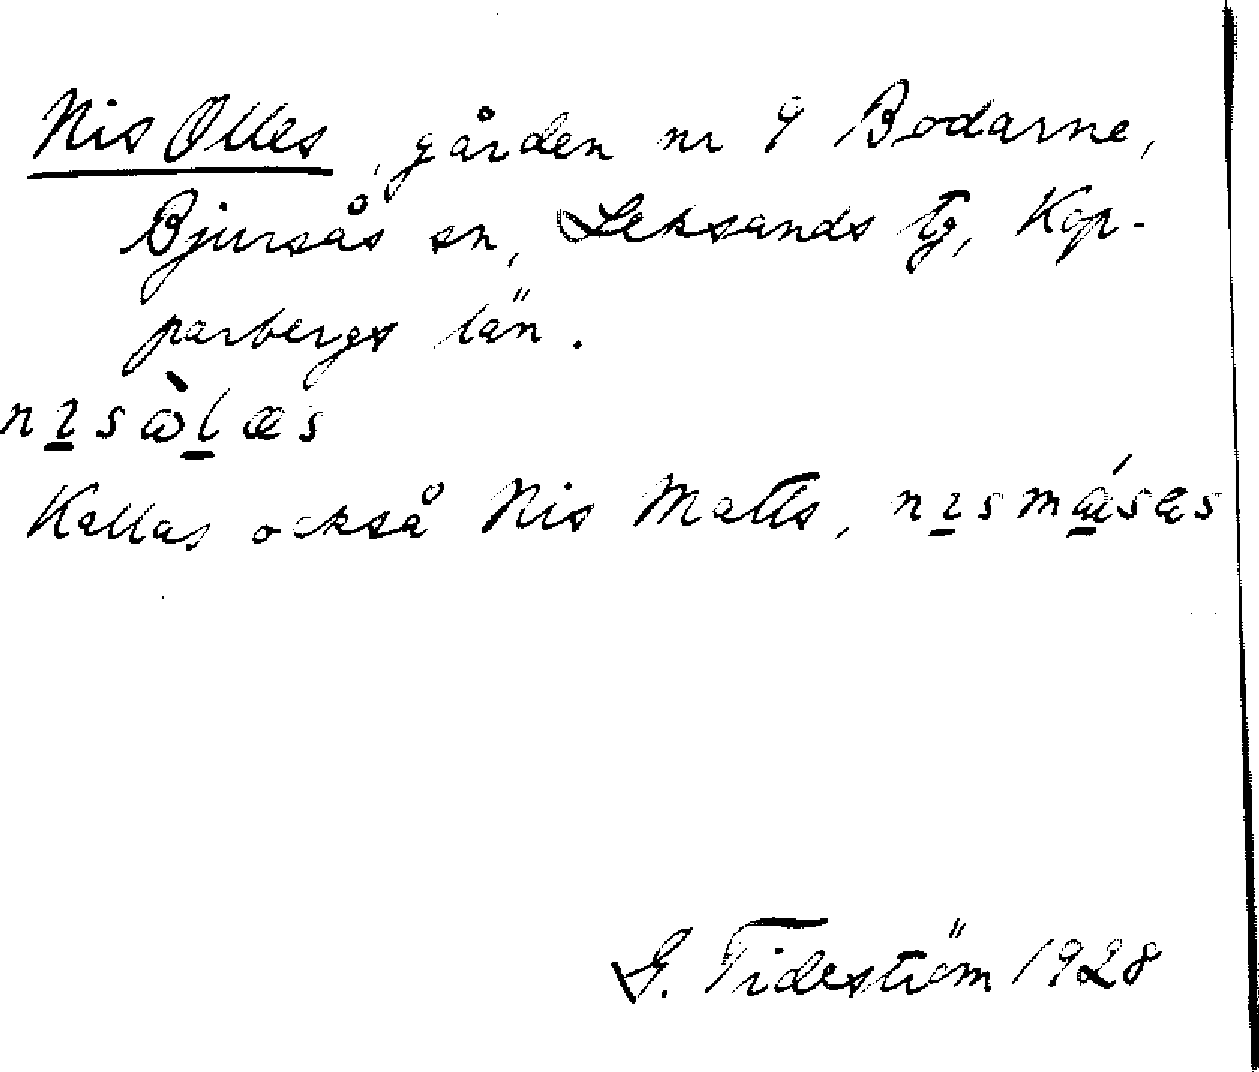 Nis Olles, gården nr 9 Bodarne,
Bjursås sn, Leksands tg, Kop-
parbergs län.
nɪsὼlæs
Kallas också Nis Matts, nɪsmǽsæs
G. Tideström 1928